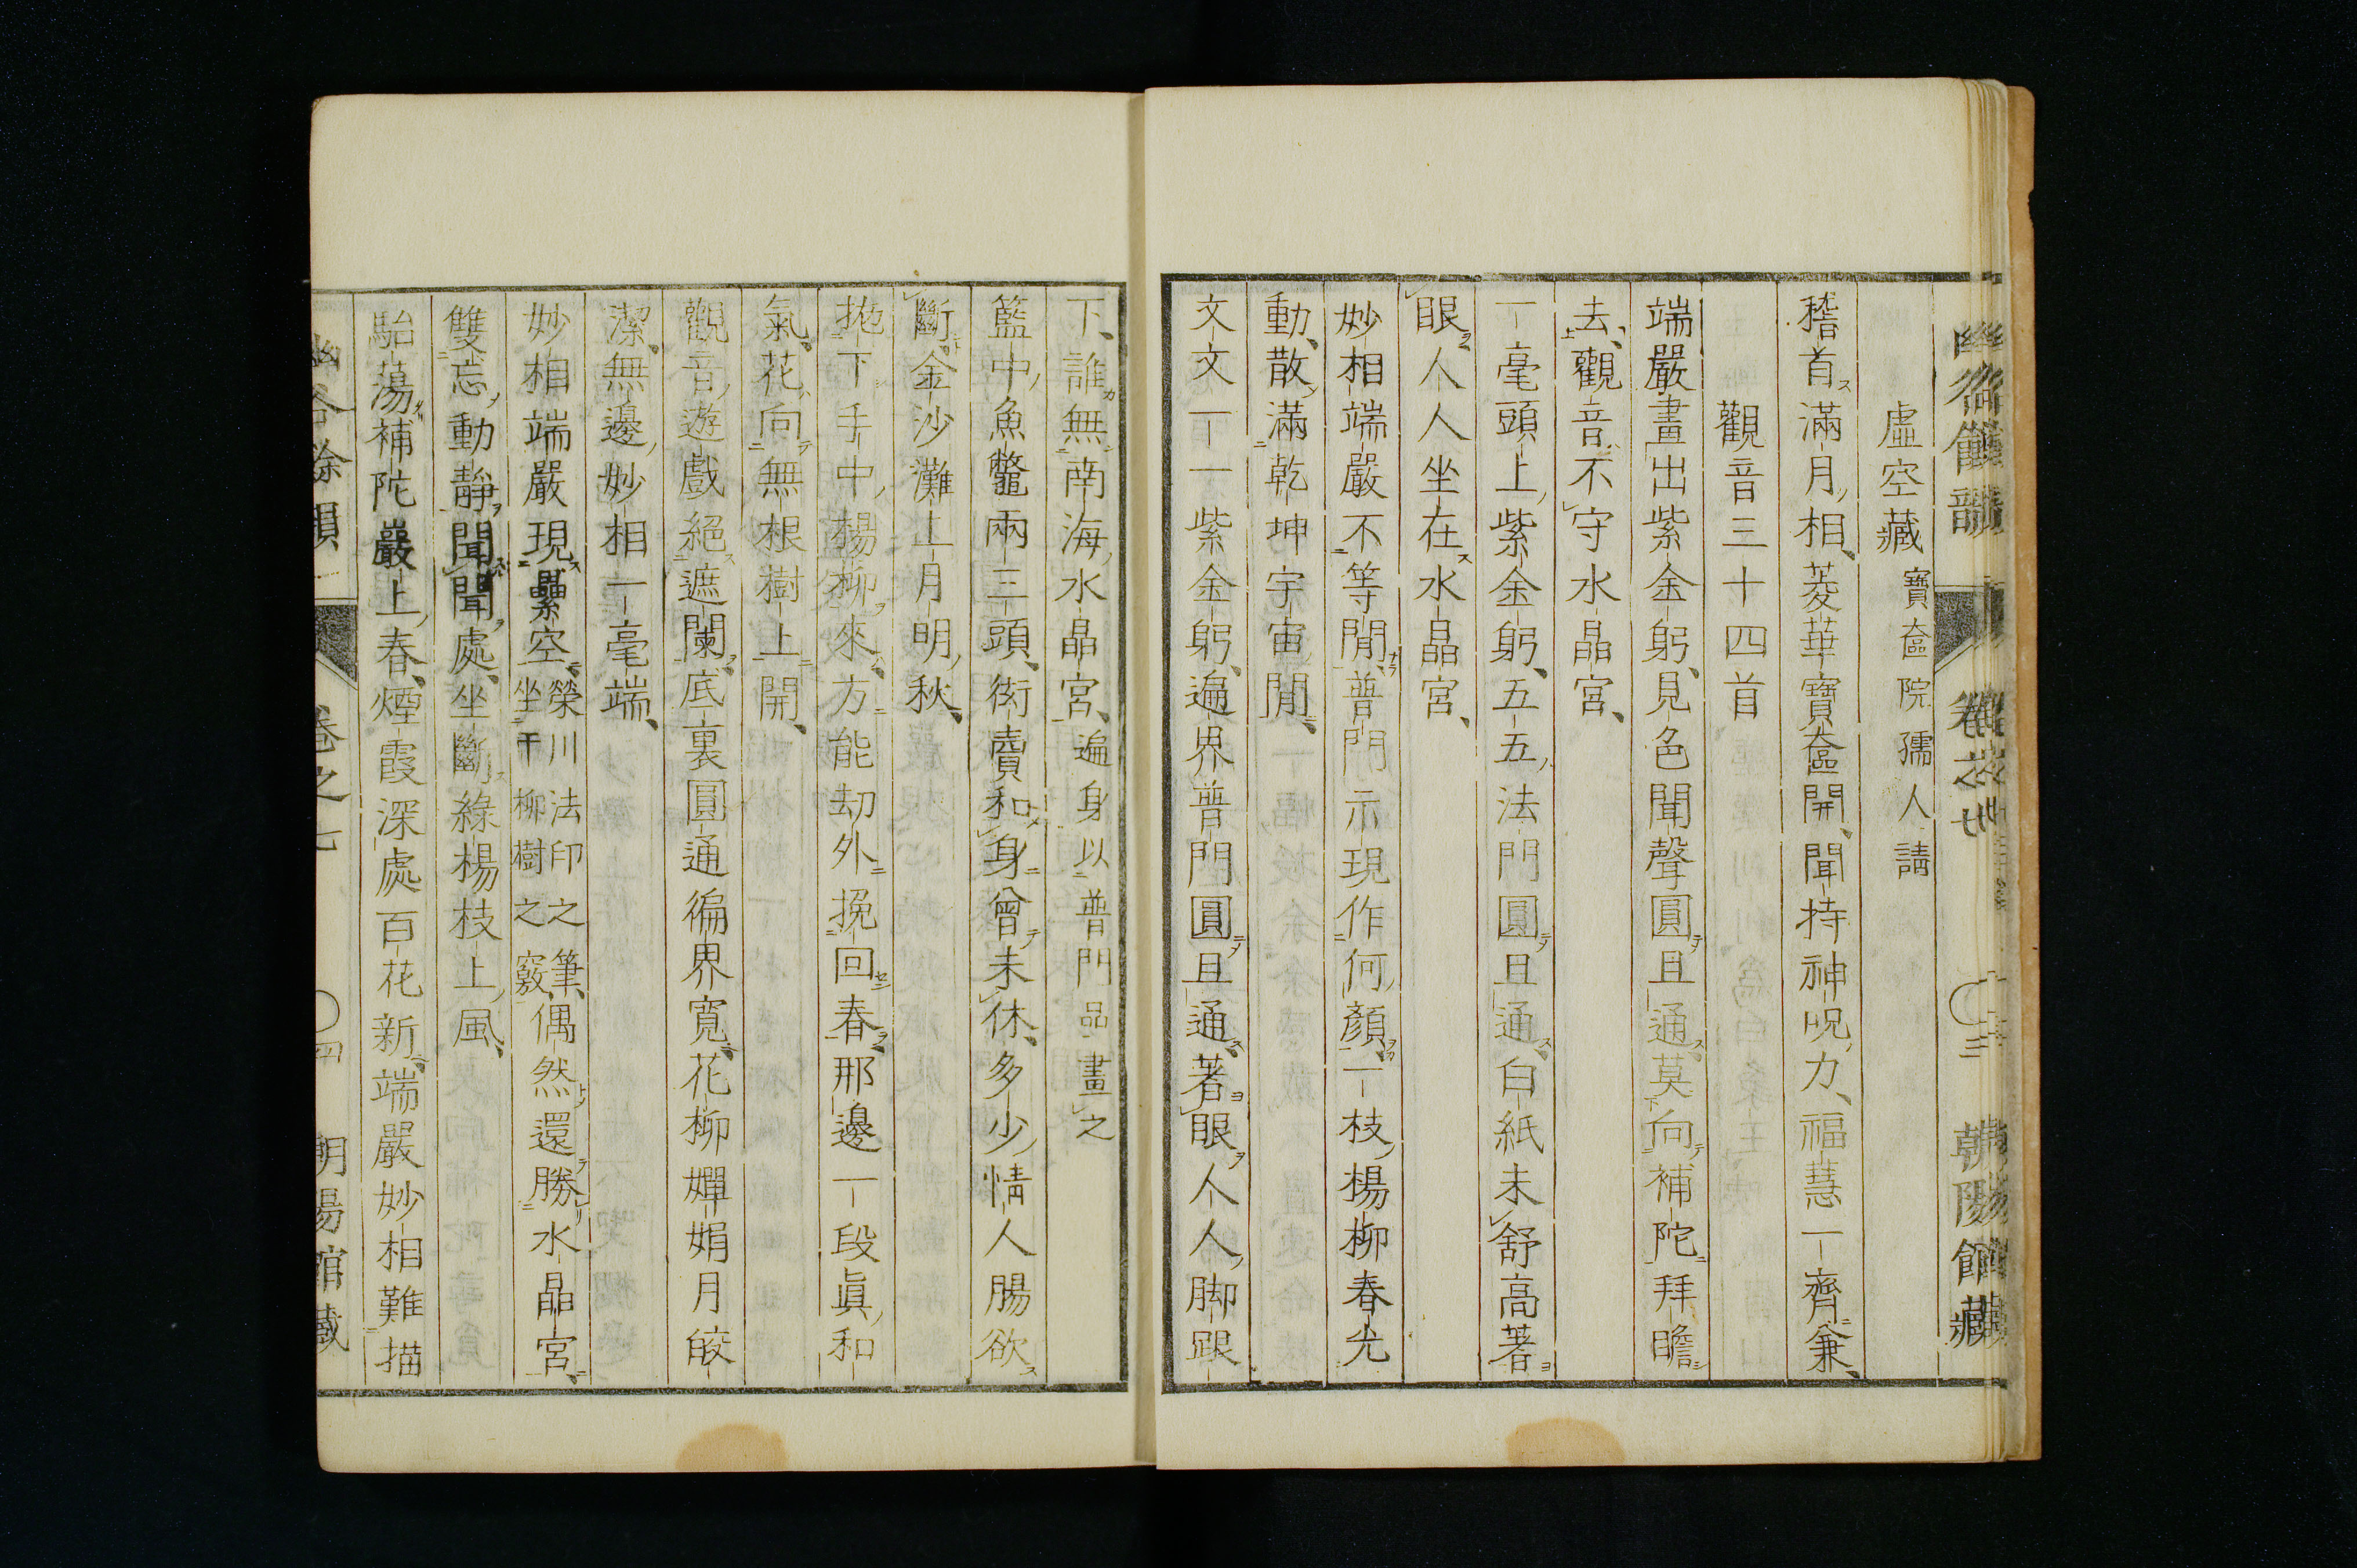 虛空藏 寶奩院孺人請
稽首滿月相菱華寶奩開聞持神呪力福慧一齊兼
觀音三十四首
端嚴畫出紫金躬見色聞聲圓且通莫向補陀拜瞻
去觀音不守水晶宮
一毫頭上紫金躬五五法門圓且通白紙未舒高著
眼人人坐在水晶宮
妙相端嚴不等閒普門示現作何顏一枝楊柳春光
動散滿乾坤宇宙閒
文文一一紫金躬遍界普門圓且通著眼人人脚跟
下誰無南海水晶宮 遍身以普門品畫之
籃中魚鼈兩三頭衒賣和身曾未休多少情人腸欲
斷金沙灘上月明秋
拋下手中楊柳來方能劫外挽回春那邊一段眞和
氣花向無根樹上開
觀音遊戲絕遮闌底裏圓通徧界寬花柳嬋娟月皎
潔無邊妙相一毫端
妙相端嚴現纍空 榮川法印之筆 坐干柳樹之竅 偶然還勝水晶宮
雙忘動靜聞聞處坐斷綠楊枝上風
駘蕩補陀巖上春煙霞深處百花新端嚴妙相難描
幽谷餘韻 卷之七 〇四 朝陽館藏